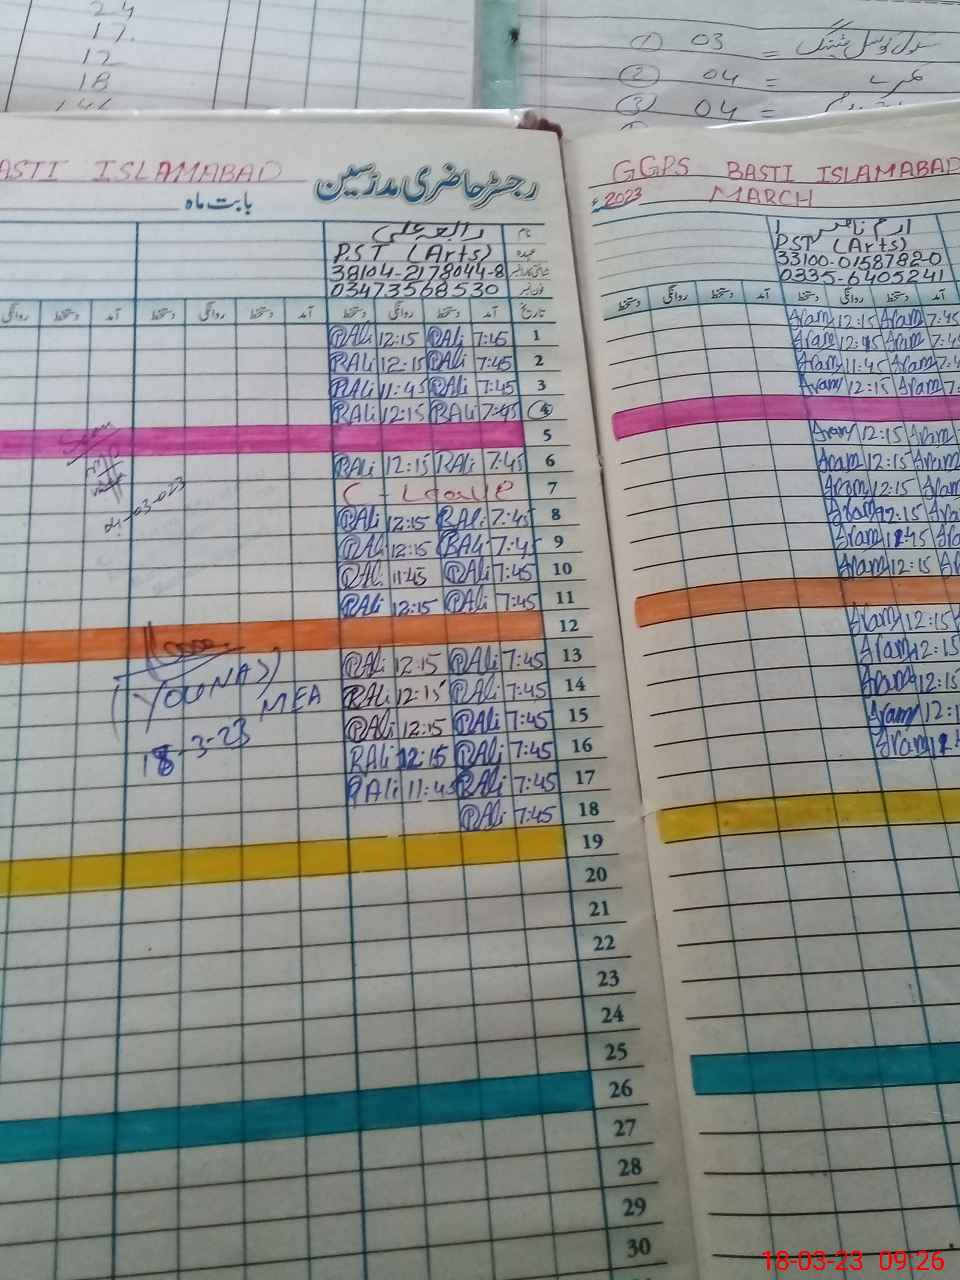 24
17
12
18
① 03 =
② 04 =
③ 04 =
BASTI ISLAMABAD
رجسٹر حاضری مدرسین
بابت ماہ
نام رابعہ علی
عہدہ P.S.T (Arts)
38104-2178044-8
03473568530
روانگی دستخط آمد دستخط روانگی دستخط آمد دستخط روانگی دستخط آمد تاریخ
RAli 12:15 RAli 7:45 1
RAli 12:15 RAli 7:45 2
RAli 11:45 RAli 7:45 3
RAli 12:15 RAli 7:45 4
5
RAli 12:15 RAli 7:45 6
C - Leave 7
RAli 12:15 RAli 7:45 8
RAli 12:15 RAli 7:45 9
RAli 11:45 RAli 7:45 10
RAli 12:15 RAli 7:45 11
12
RAli 12:15 RAli 7:45 13
RAli 12:15 RAli 7:45 14
RAli 12:15 RAli 7:45 15
RAli 12:15 RAli 7:45 16
RAli 11:45 RAli 7:45 17
RAli 7:45 18
19
20
21
22
23
24
25
26
27
28
29
30
04-03-023
(YOUNAS)
MEA
18-3-23
GGPS BASTI ISLAMABAD
2023ء MARCH
ارم ناصر
PST (Arts)
33100-0158782-0
0335-6405241
روانگی دستخط آمد دستخط روانگی دستخط آمد
Aram 12:15 Aram 7:45
Aram 12:15 Aram 7:45
Aram 11:45 Aram 7:4
Aram 12:15 Aram 7:
Aram 12:15 Aram 7
Aram 12:15 Aram
Aram 12:15 Aram
Aram 12:15 Ara
Aram 11:45 Ara
Aram 12:15 Ar
Aram 12:15
Aram 12:15
Aram 12:15
Aram 12:1
Aram 12
18-03-23 09:26